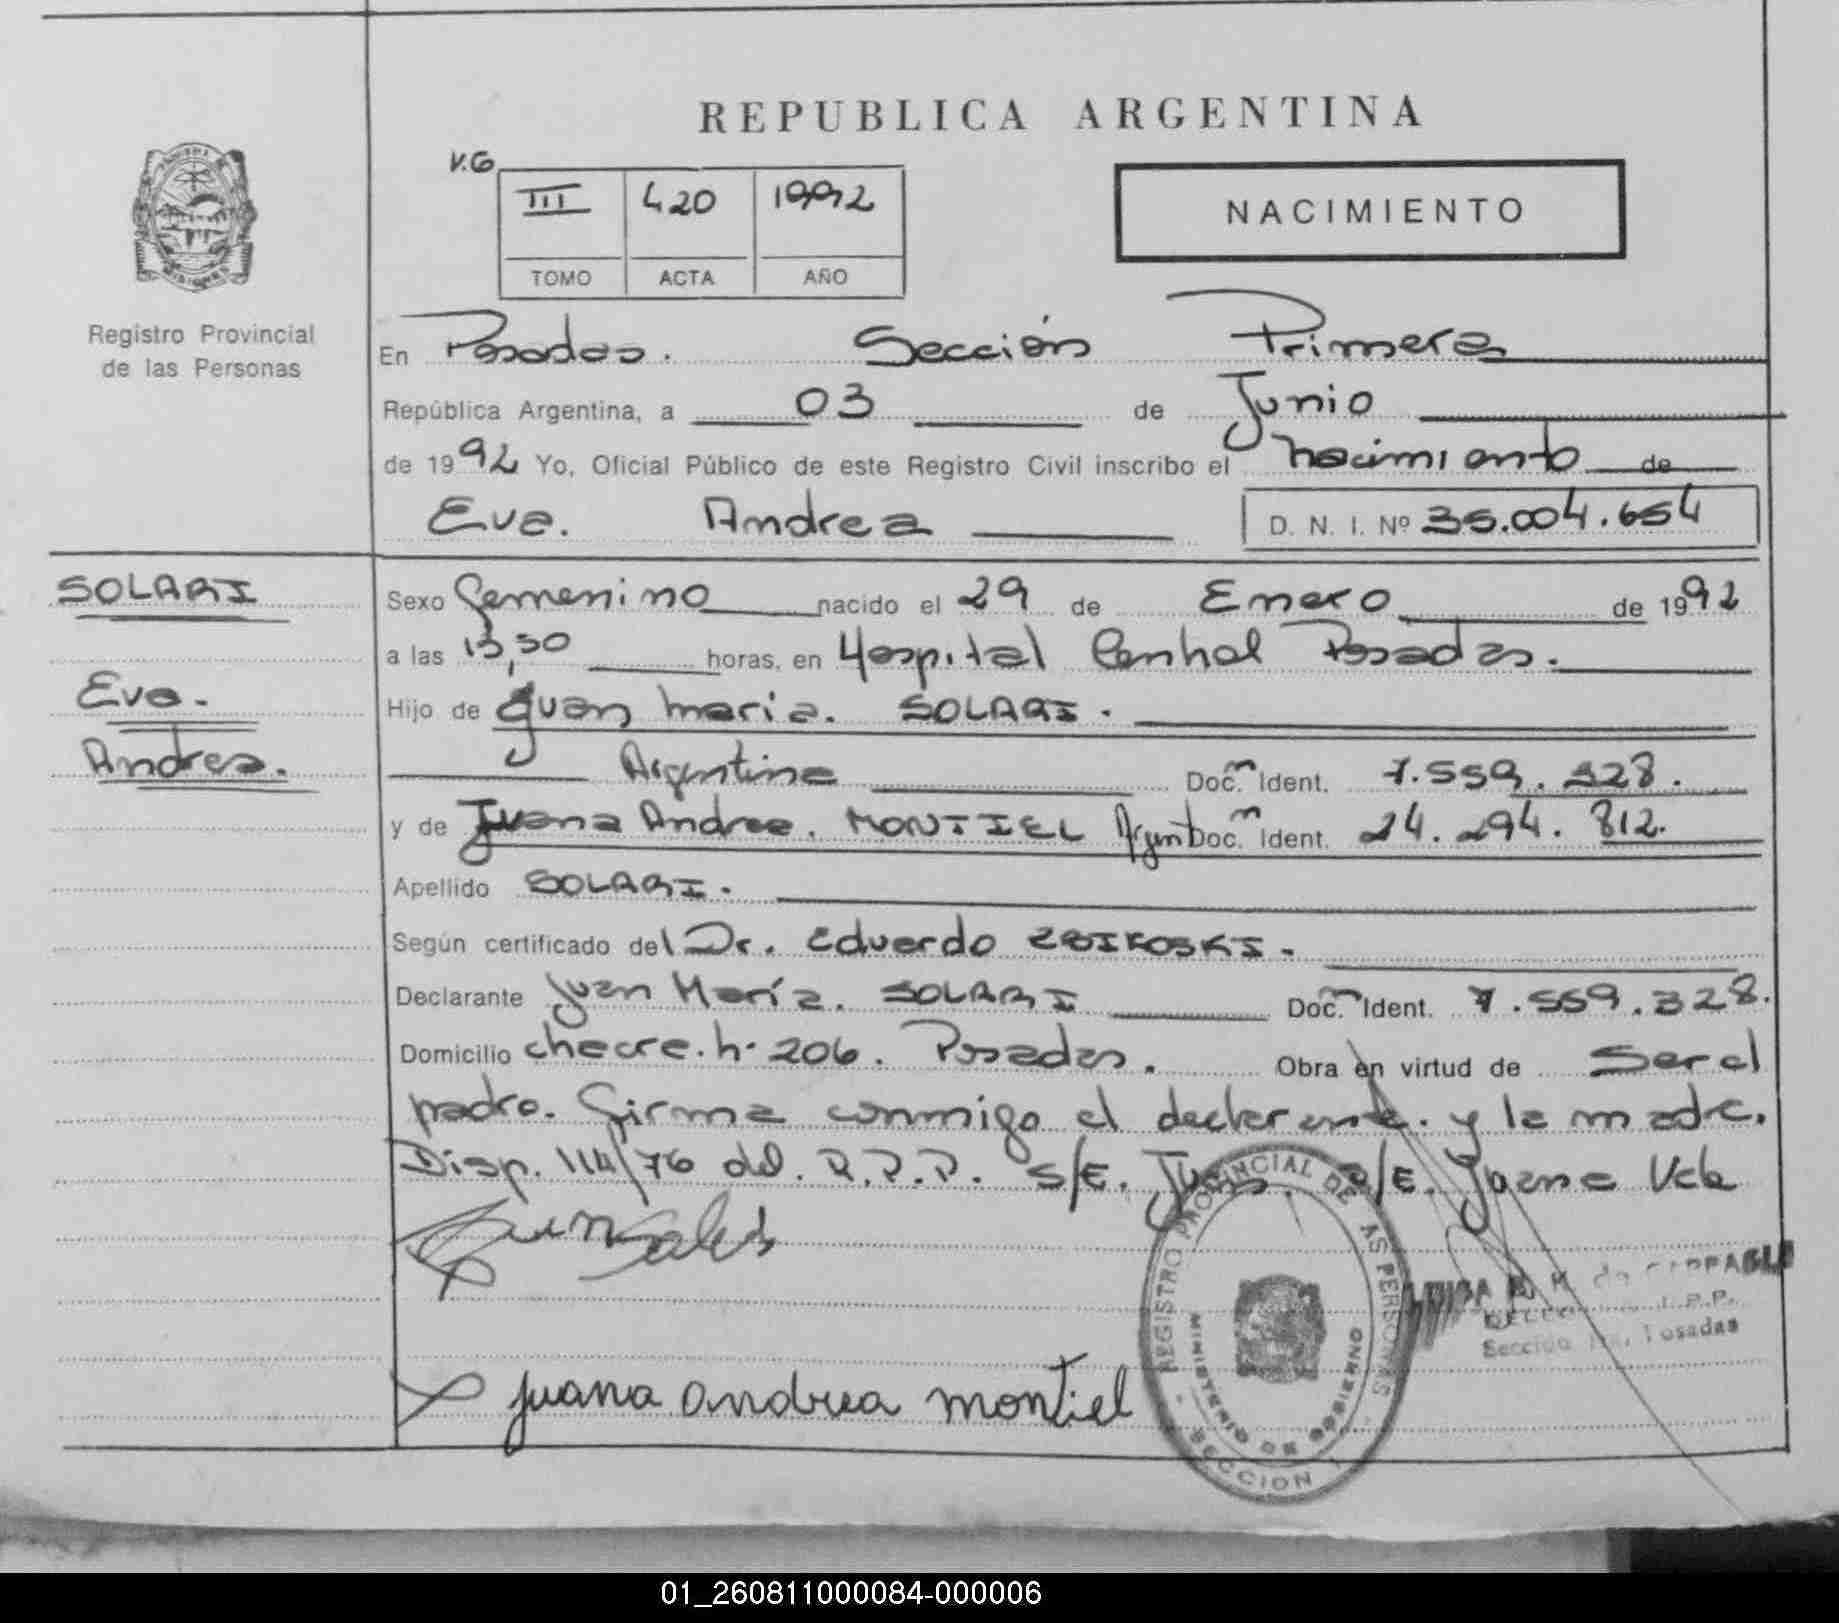 REPUBLICA ARGENTINA
V.G
III 420 1992
TOMO ACTA AÑO
NACIMIENTO
MISIONES
Registro Provincial
de las Personas
En Posadas. Sección Primera
República Argentina, a 03 de Junio
de 1992 Yo, Oficial Público de este Registro Civil inscribo el nacimiento de
Eva. Andrea D. N. I. Nº 35.004.654
SOLARI
Eva.
Andrea.
Sexo femenino nacido el 29 de Enero de 1992
a las 13,30 horas, en Hospital Central Posadas.
Hijo de Juan María. SOLARI.
Argentina Doc.n Ident. 7.559.328.
y de Juana Andrea. MONTIEL Argent Doc.n Ident. 24.294.812.
Apellido SOLARI.
Según certificado del Dr. Eduardo ZBIKOSKI.
Declarante Juan María. SOLARI Doc.n Ident. 7.559.328.
Domicilio chacra. h. 206. Posadas. Obra en virtud de Ser el
padre. Firma conmigo el declarante. y la madre.
Disp. 114/76 del. R.P.P. S/E. Juan. S/E. Juana Vale
Juan
X juana andrea montiel
REGISTRO PROVINCIAL DE LAS PERSONAS
MINISTERIO DE GOBIERNO
SECCION
R.P.P.
Sección 1a. Posadas
01_260811000084-000006